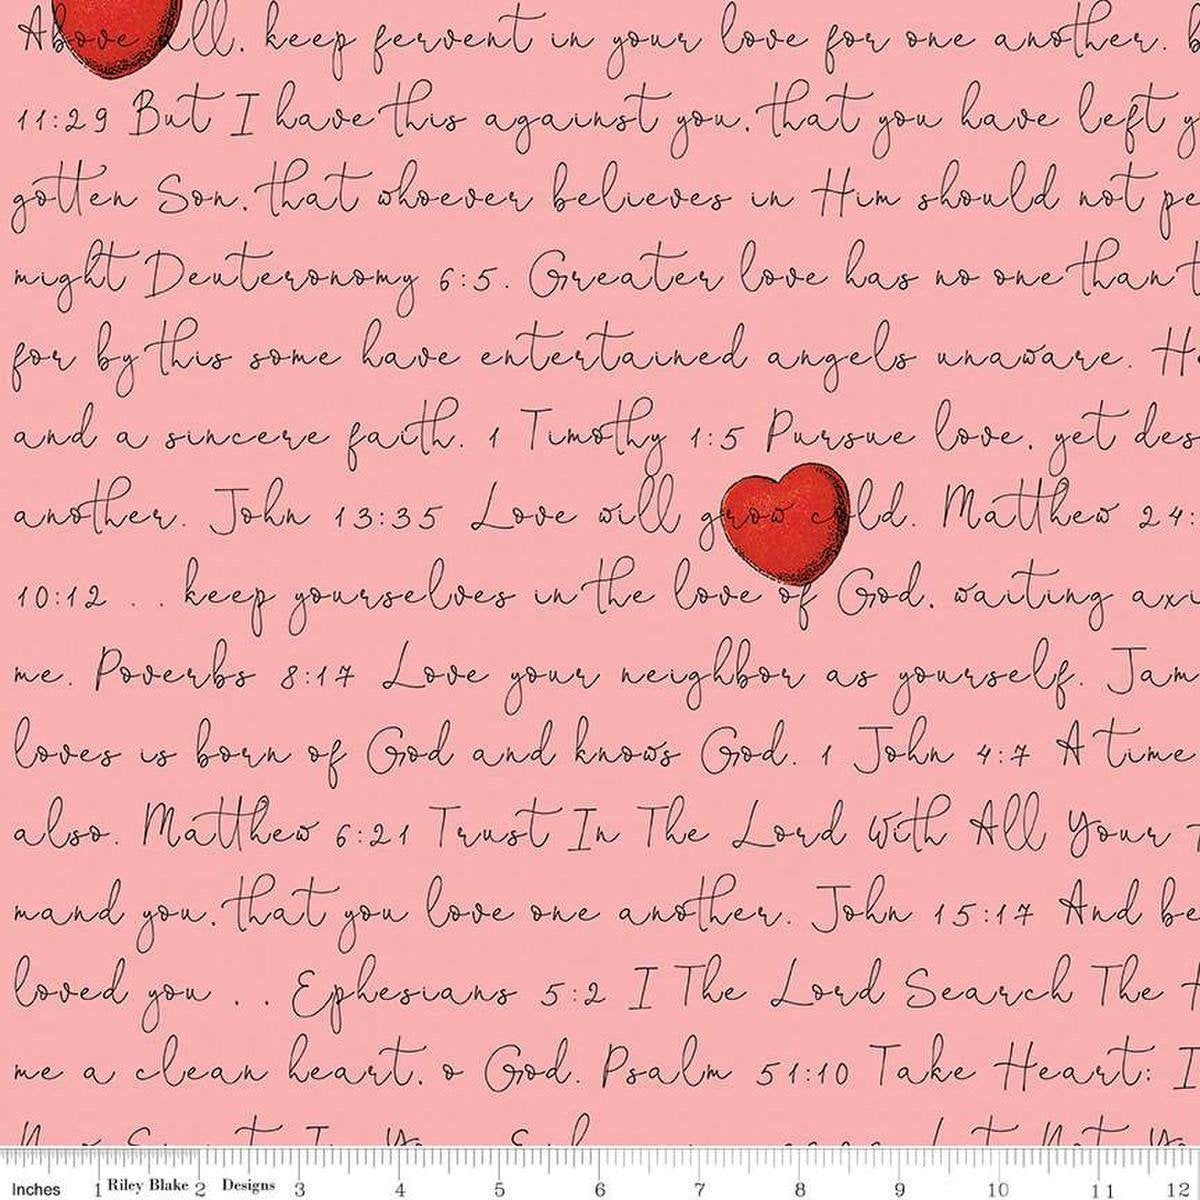 Above all, keep fervent in your love for one another. b
11:29 But I have this against you, that you have left y
gotten Son, that whoever believes in Him should not pe
might Deuteronomy 6:5. Greater love has no one than t
for by this some have entertained angels unaware. He
and a sincere faith. 1 Timothy 1:5 Pursue love, yet des
another. John 13:35 Love will grow cold. Matthew 24:
10:12 . . keep yourselves in the love of God, waiting axi
me. Poverbs 8:17 Love your neighbor as yourself. Jam
loves is born of God and knows God. 1 John 4:7 A time
also. Matthew 6:21 Trust In The Lord With All Your
mand you, that you love one another. John 15:17 And be
loved you . . Ephesians 5:2 I The Lord Search The
me a clean heart, o God. Psalm 51:10 Take Heart: I
Inches 1 Riley Blake 2 Designs 3 4 5 6 7 8 9 10 11 12